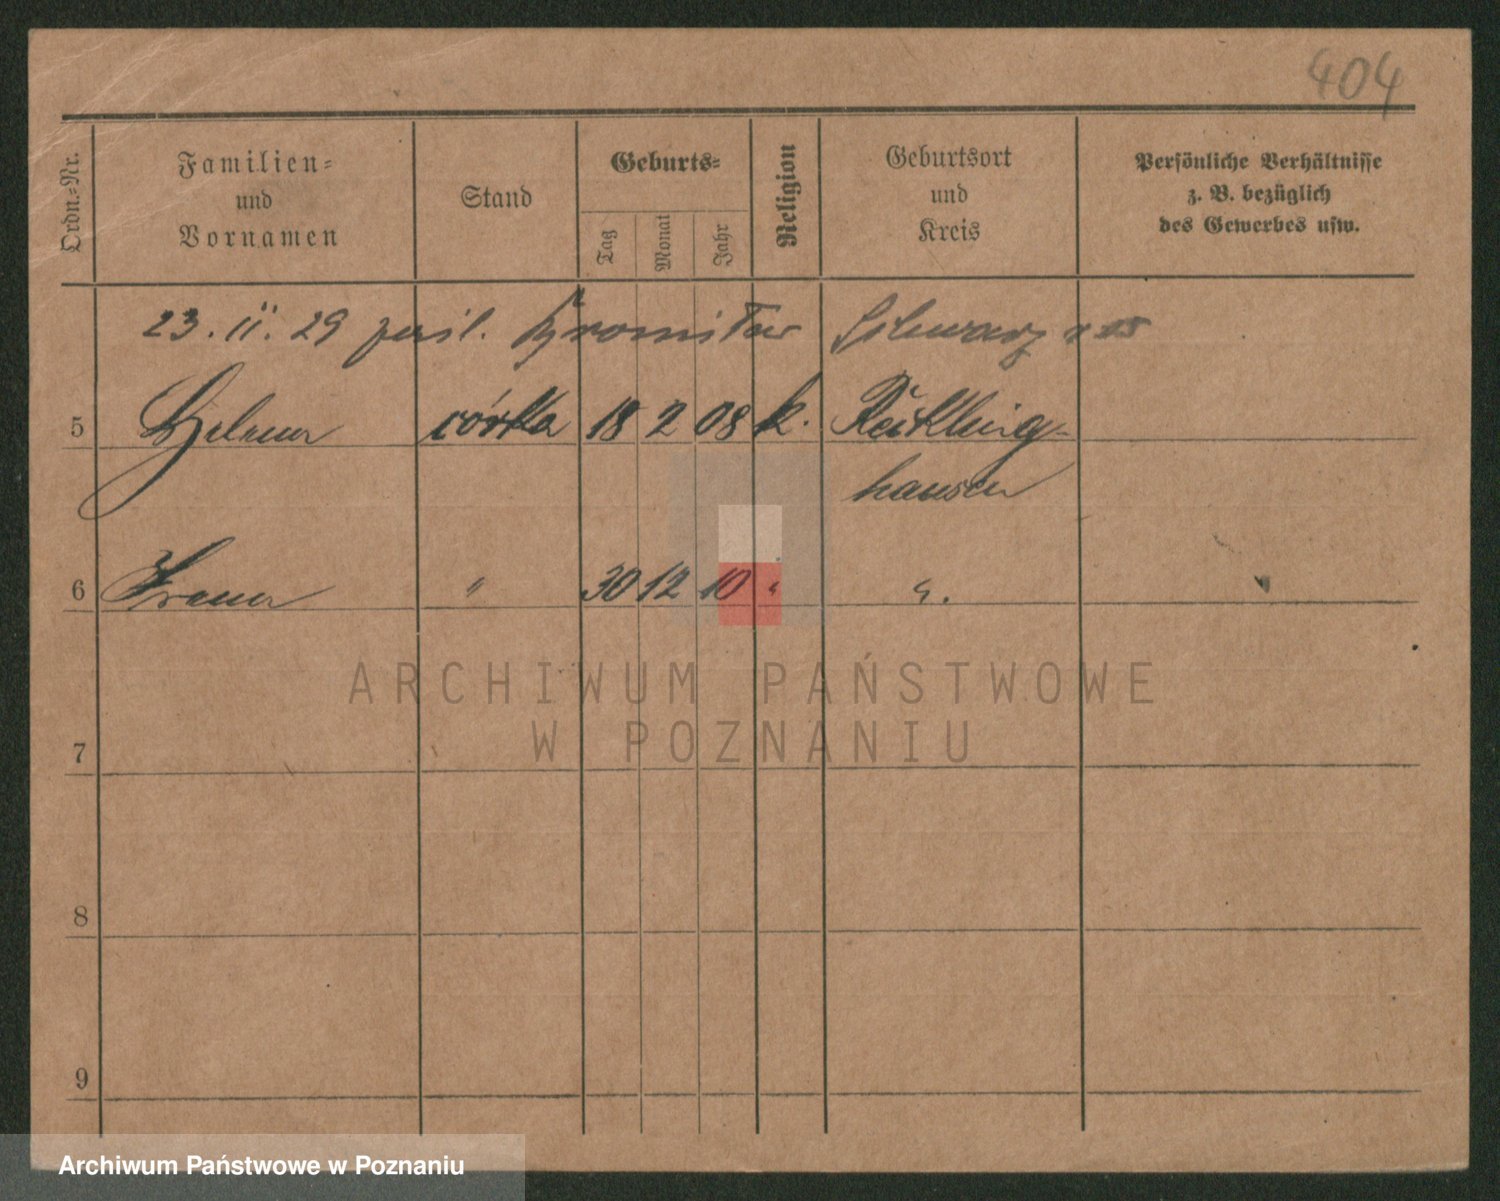 404
Ordn.-Nr.
Familien-
und
Vornamen
Stand
Geburts-
Tag
Monat
Jahr
Religion
Geburtsort
und
Kreis
Persönliche Verhältnisse
z. B. bezüglich
des Gewerbes usw.
23. II. 29
5 Helena córka 18 2 08 k. Reckling-
hausen
6 Irena " 30 12 10 " ".
7
8
9
ARCHIWUM PAŃSTWOWE
W POZNANIU
Archiwum Państwowe w Poznaniu